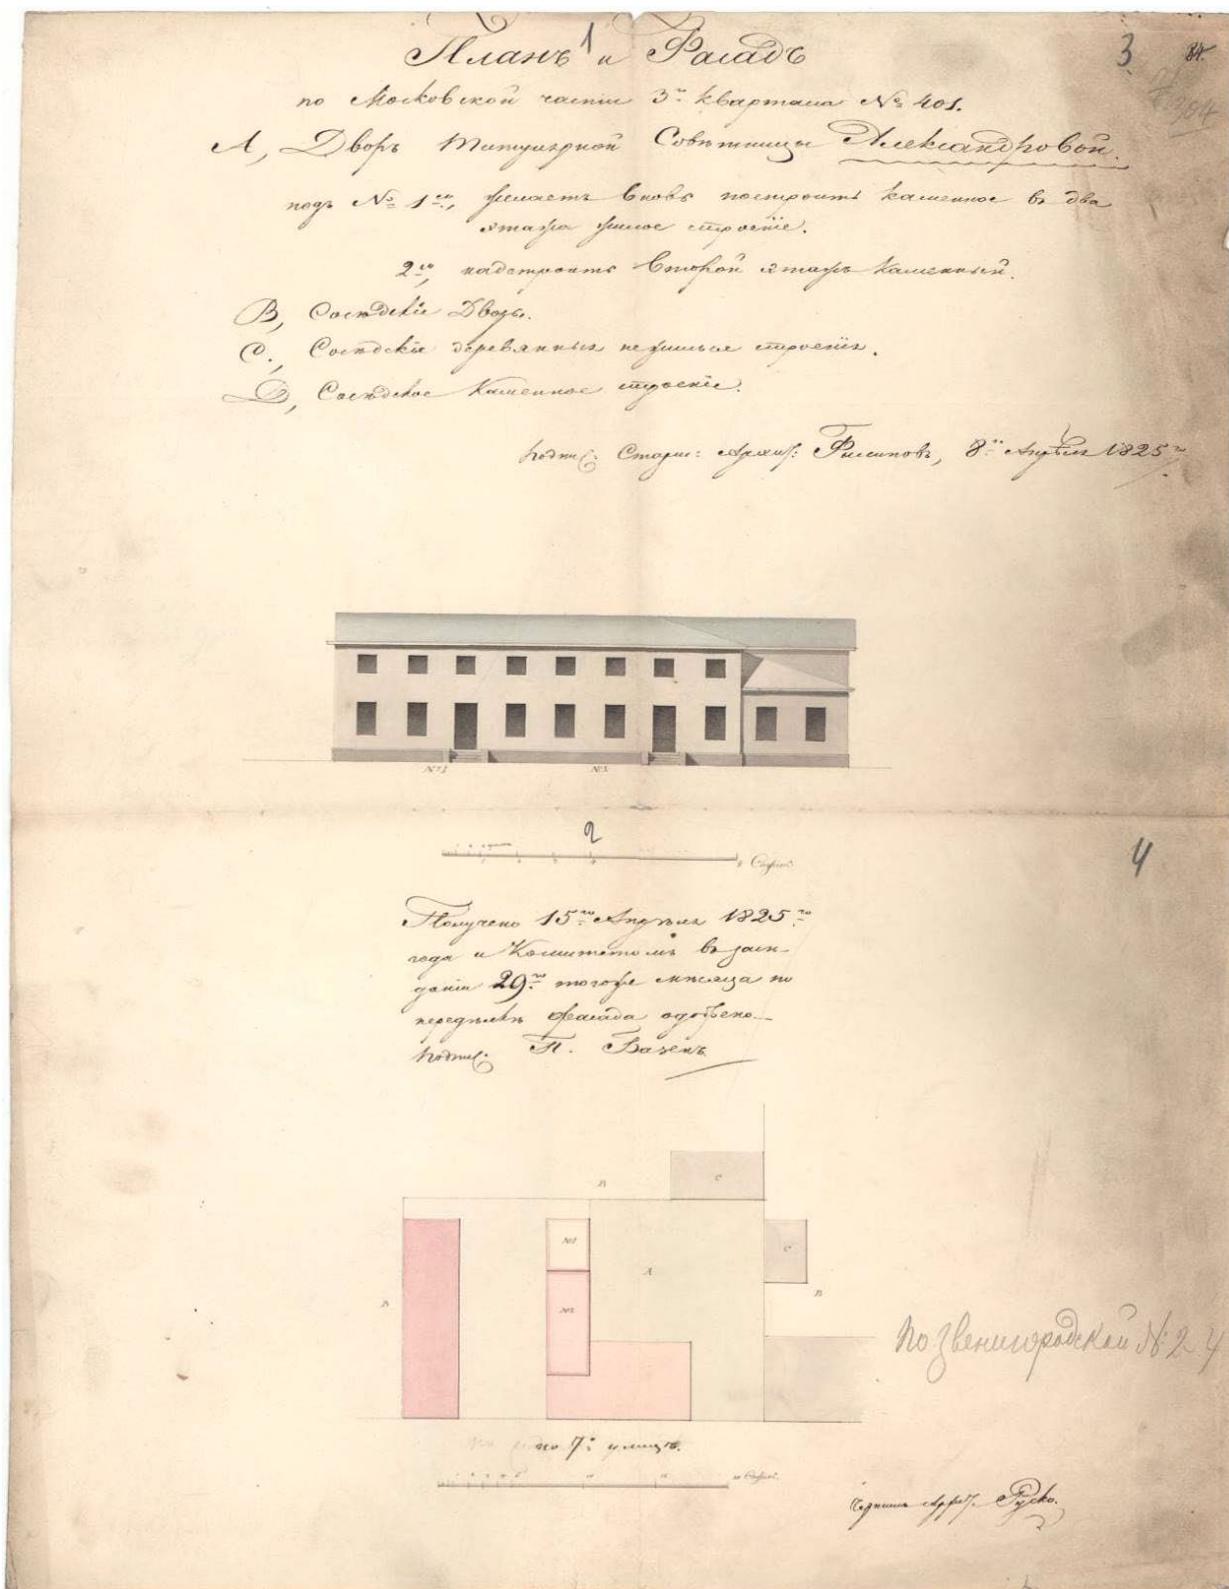 1
3
84
Планъ и Фасадъ
по Московской части 3го квартала № 401.
А, Дворъ Титулярной Совѣтницы Александровой.
подъ № 1м, желаетъ вновь построить каменное въ два
этажа жилое строенiе.
2м, надстроить второй этажъ каменный.
В, Сосѣдскiе Дворы.
С, Сосѣдскiе деревянныя нежилые строенiя.
D, Сосѣдское Каменное строенiе.
Подпис: Старш: Архит: Филиповъ, 8го Апрѣля 1825го
№1
№2
2
Сажен.
4
Получено 15го Апрѣля 1825го
года и Комитетомъ въ засѣ-
данiи 29го тогоже мѣсяца по
передѣлкѣ фасада одобрено
Подпис: П. Базенъ
С
В
№1
А
С
В
В
№2
По Звенигородской № 2-4
по 7й улицѣ.
Сажен.
Архит. Руско.